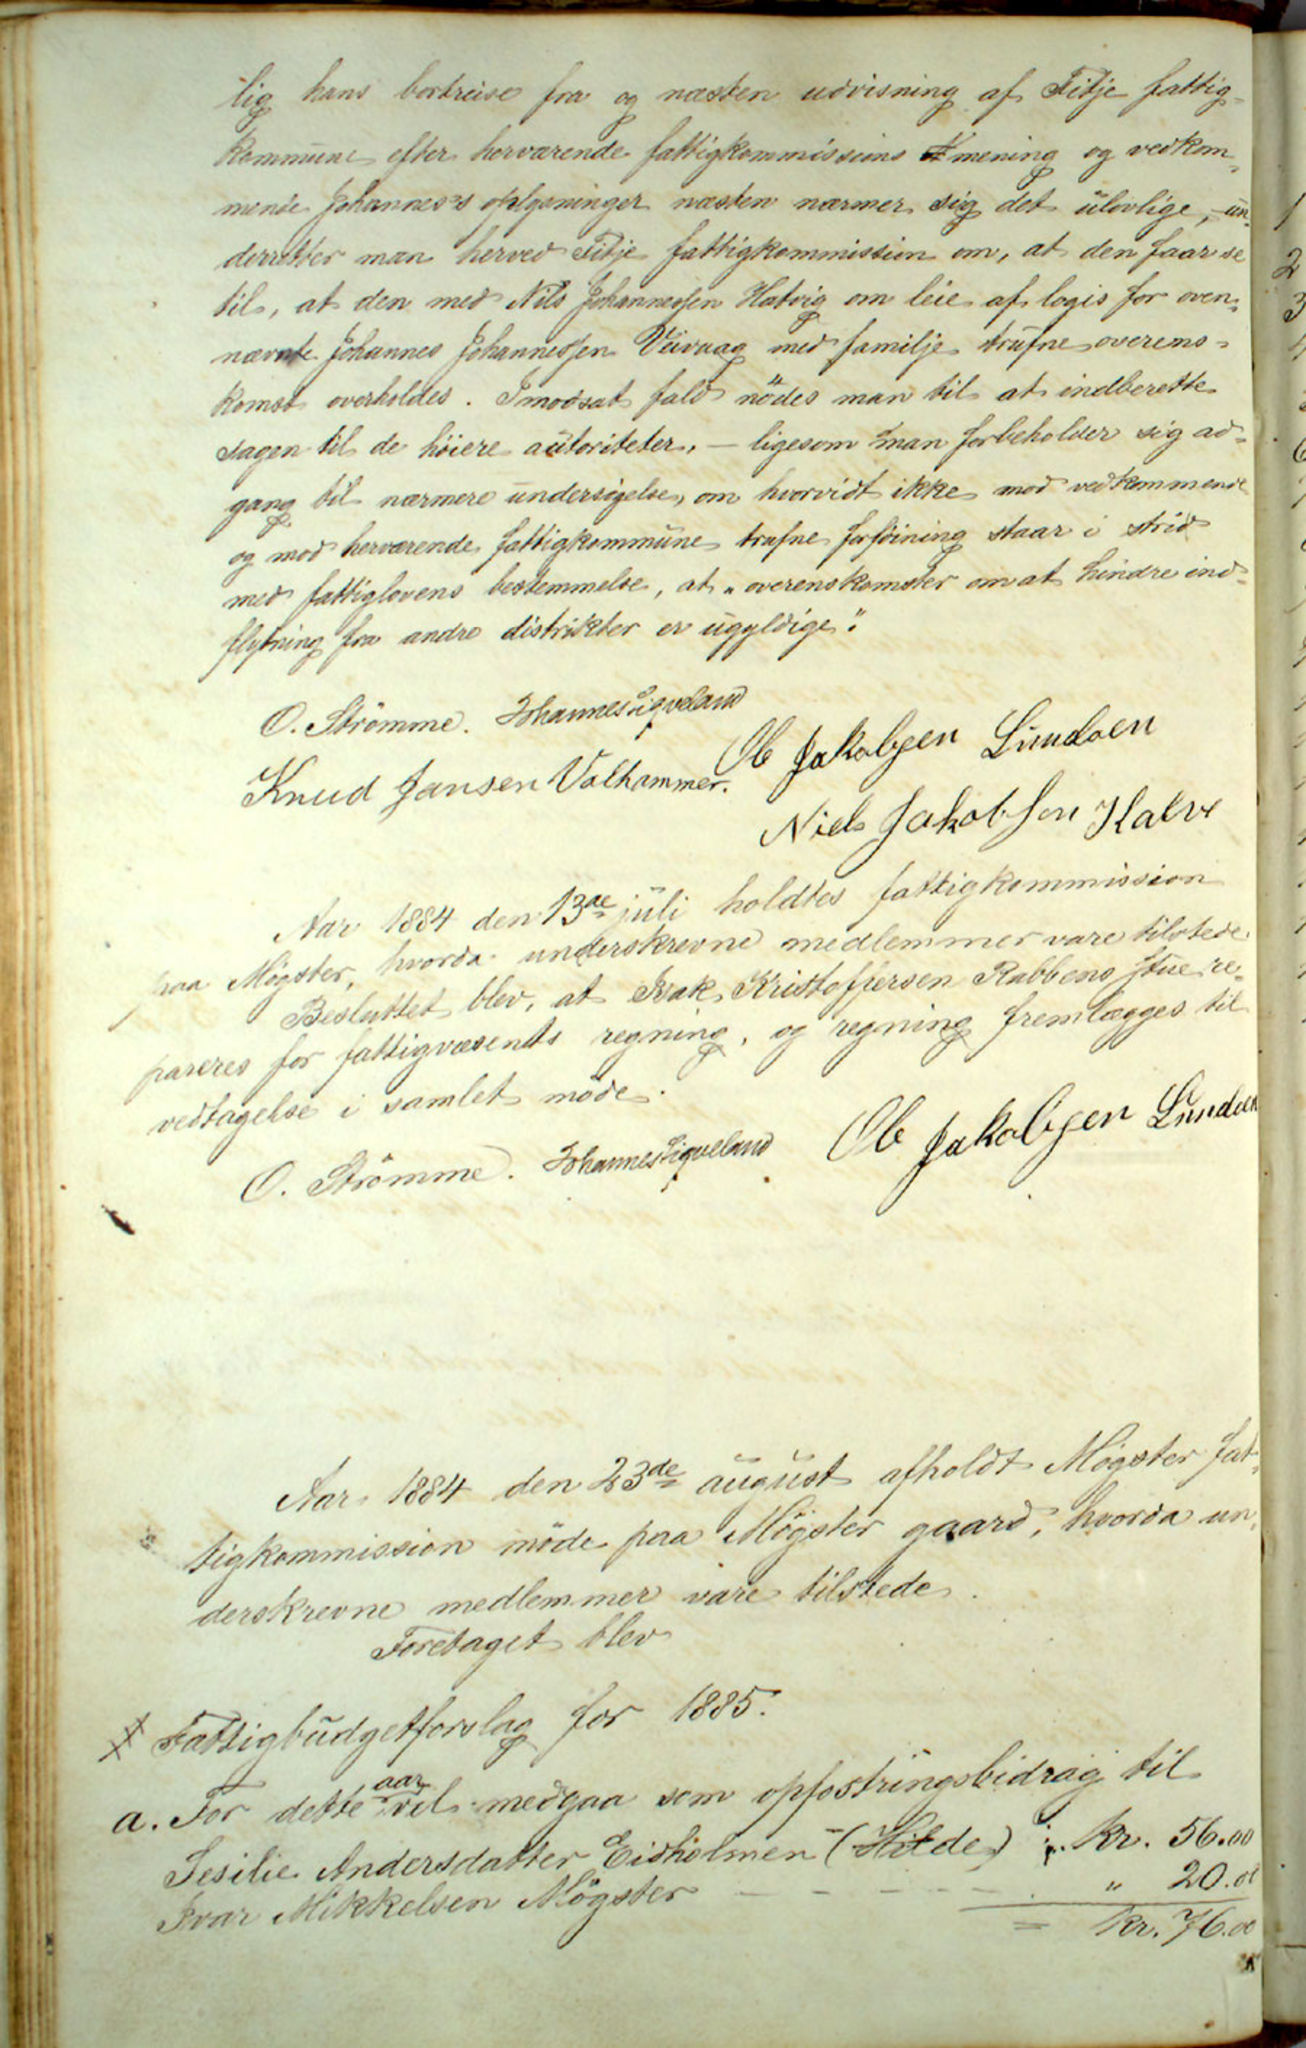 lig hans bortreise fra og næsten udvisning af Fitje fattig-
kommune efter herværende fattigkommissions mening og vedkom-
mende Johannes's oplysninger næsten nærmer sig det ulovlige, - un-
derretter man herved Fitje fattigkommission om, at den faar se
til, at den med Nils Johannessen Hatvig om leie af logis for oven-
nævnte Johannes Johannessen Veivaag med familje trufne overens-
komst overholdes. I modsat fald nödes man til at indberette
sagen til de höiere autoriteter, - ligesom man forbeholder sig ad-
gang til nærmere undersögelse, om hvorvidt ikke mod vedkommende
og mod herværende fattigkommune trufne forföining staar i strid
med fattiglovens bestemmelse, at "overenskomster om at hindre ind-
flytning fra andre distrikter er ugyldige".
O. Strömme. Johannes Sigveland
Ole Jakobsen Lundöen
Knud Jansen Valhammer.
Niels Jakobsen Kalve
Aar 1884 den 13de juli holdtes fattigkommission
paa Mögster, hvorda underskrevne medlemmer vare tilstede.
Besluttet blev, at Isak Kristoffersen Rabbens stue re-
pareres for fattigvæsenets regning, og regning fremlægges til
vedtagelse i samlet möde.
O. Strömme. Johannes Sigveland Ole Jakobsen Lundöen
Aar 1884 den 23de august afholdt Mögster fat-
tigkommission möde paa Mögster gaard, hvorda un-
derskrevne medlemmer vare tilstede.
Foretaget blev
Fattigbudgetforslag for 1885.
a. For dette aar vil medgaa som opfostringsbidrag til
Sesilie Andersdatter Eidholmen (Hilde) kr. 56.00
Ivar Mikkelsen Mögster - - - - - " 20.00
= kr. 76.00
1
2
3